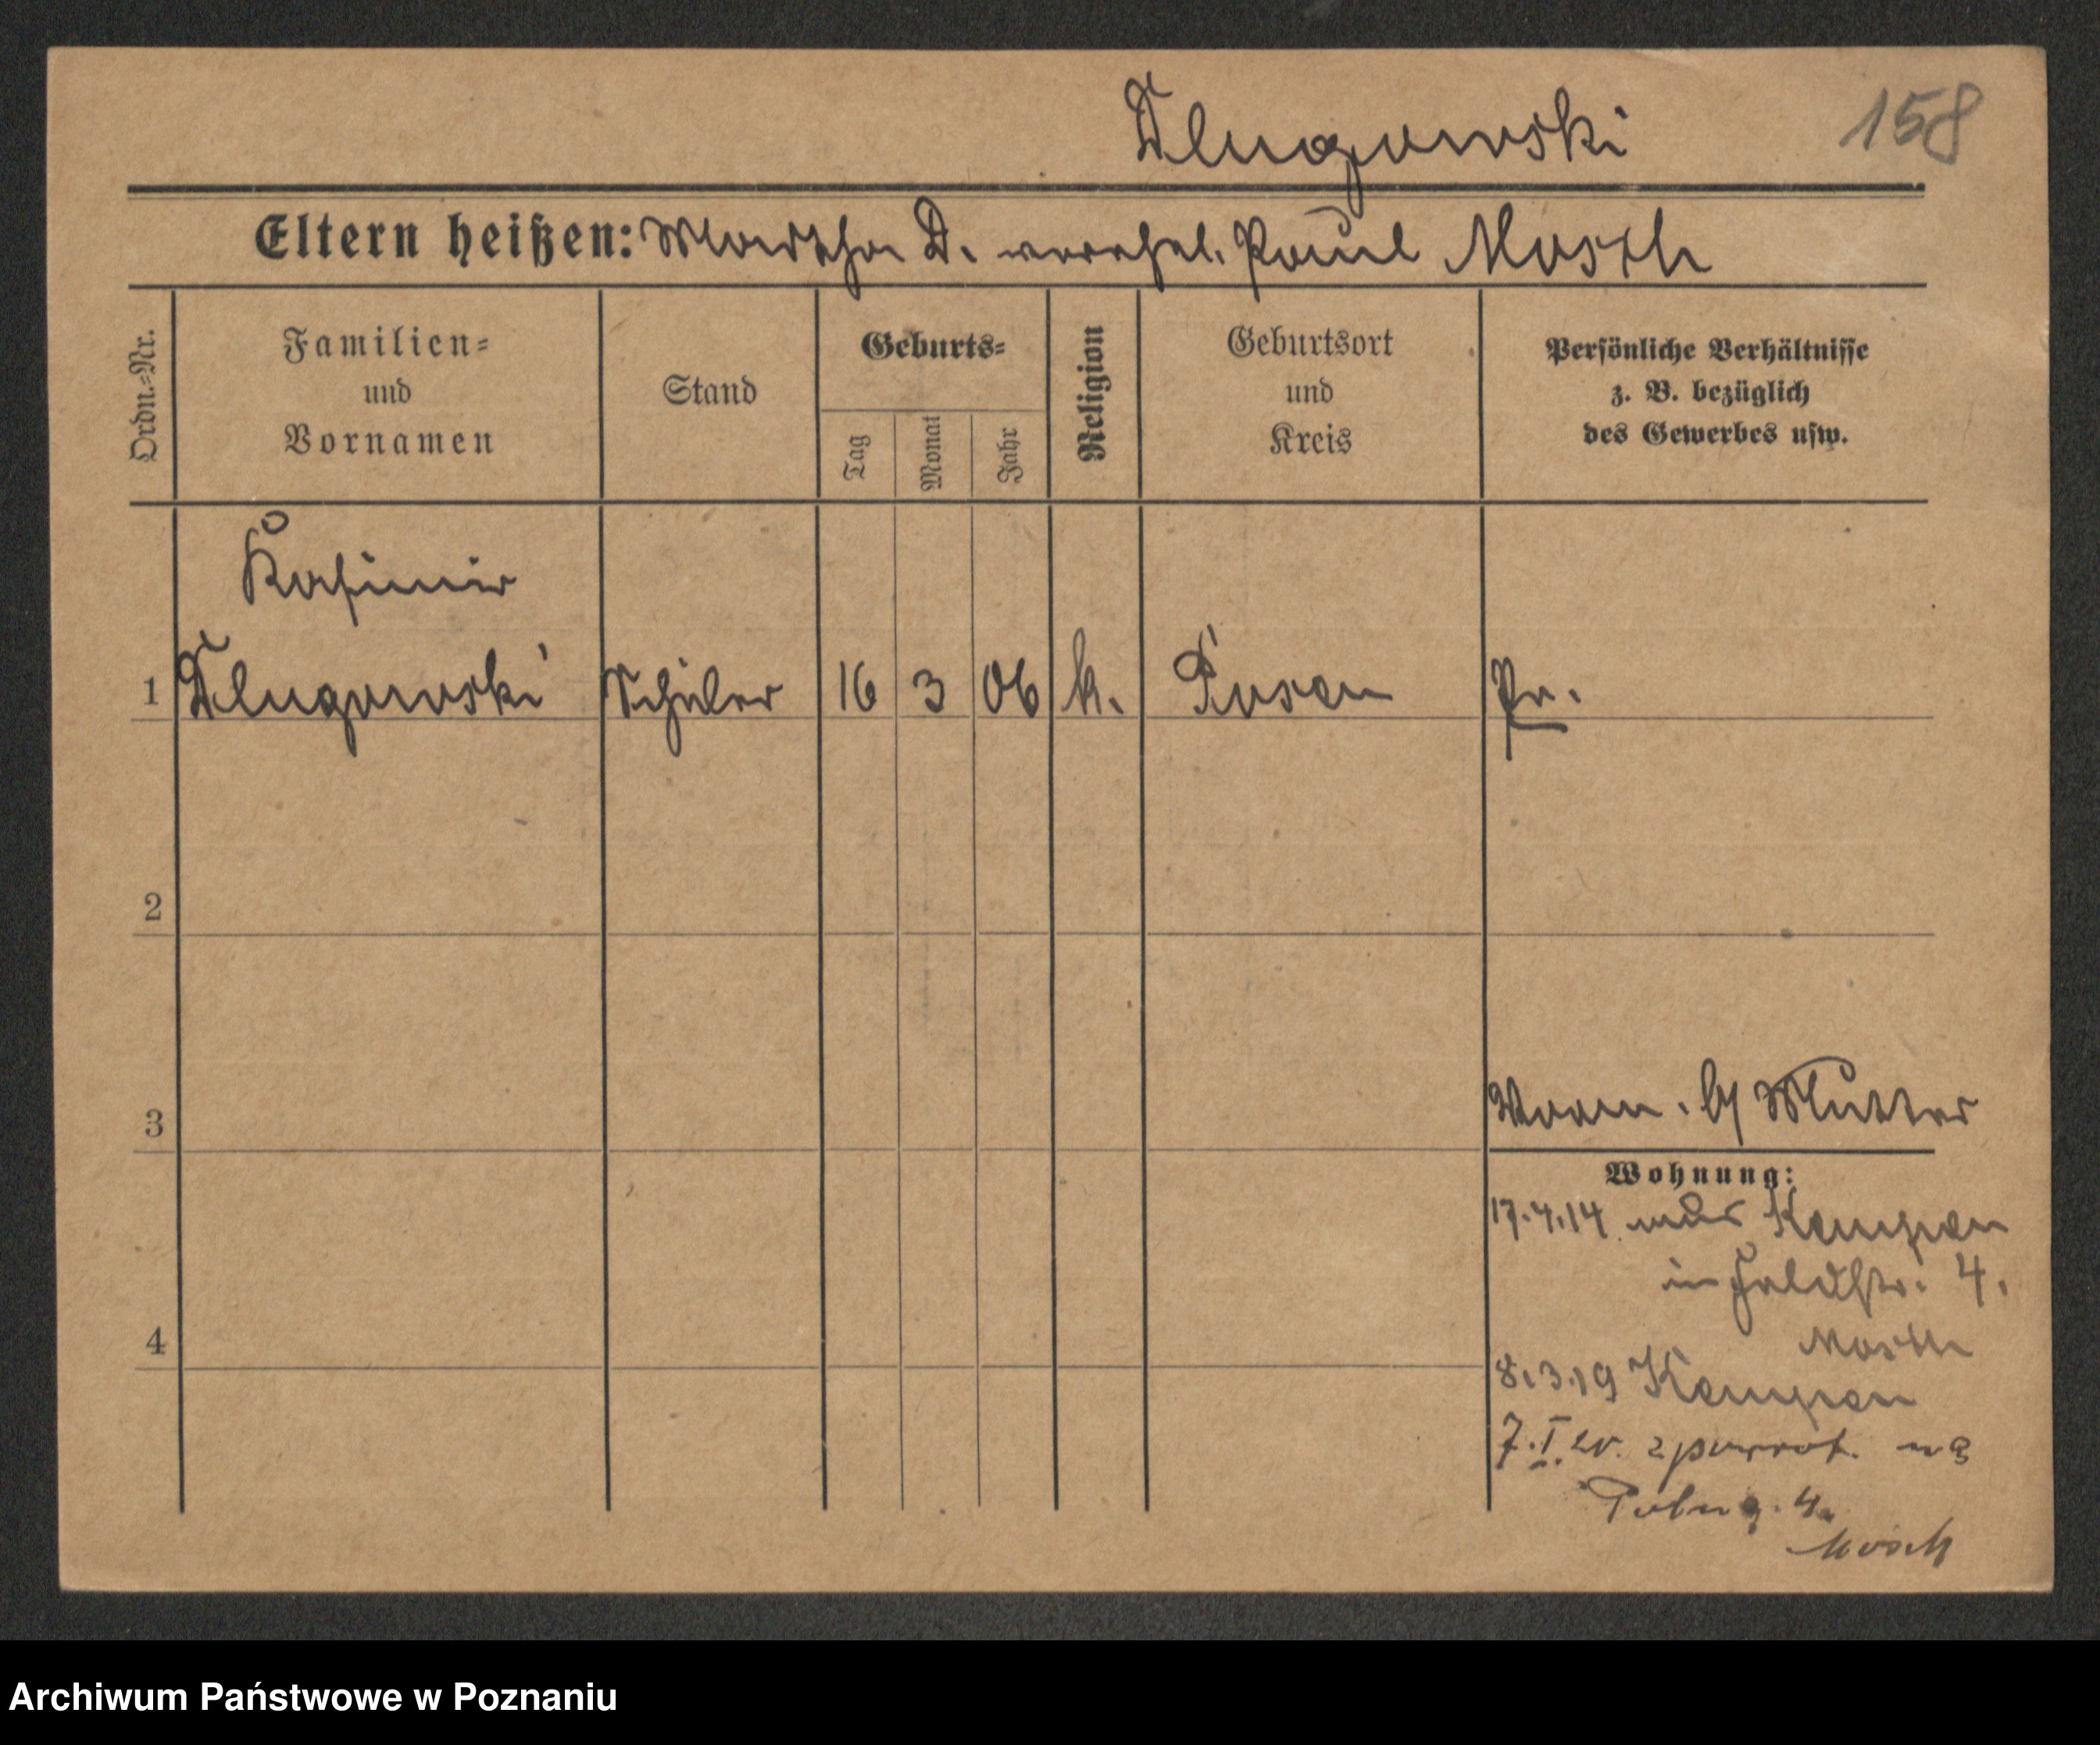 Dlugowski 158
Eltern heißen: Martha D. verehel. Paul Mosch
Ordn.=Nr.
Familien=
und
Vornamen
Stand
Geburts=
Tag
Monat
Jahr
Religion
Geburtsort
und
Kreis
Persönliche Verhältnisse
z. B. bezüglich
des Gewerbes usw.
Kasimir
1 Dlugowski Schüler 16 3 06 k. Posen Pr.
2
3
Vorm. Mutter
Wohnung:
17.4.14 aus Kempen
in Feldstr. 4.
Mosch
4
8.3.19 Kempen
7.I. 20. z powrot. na
Polną. 4.
Mosch
Archiwum Państwowe w Poznaniu